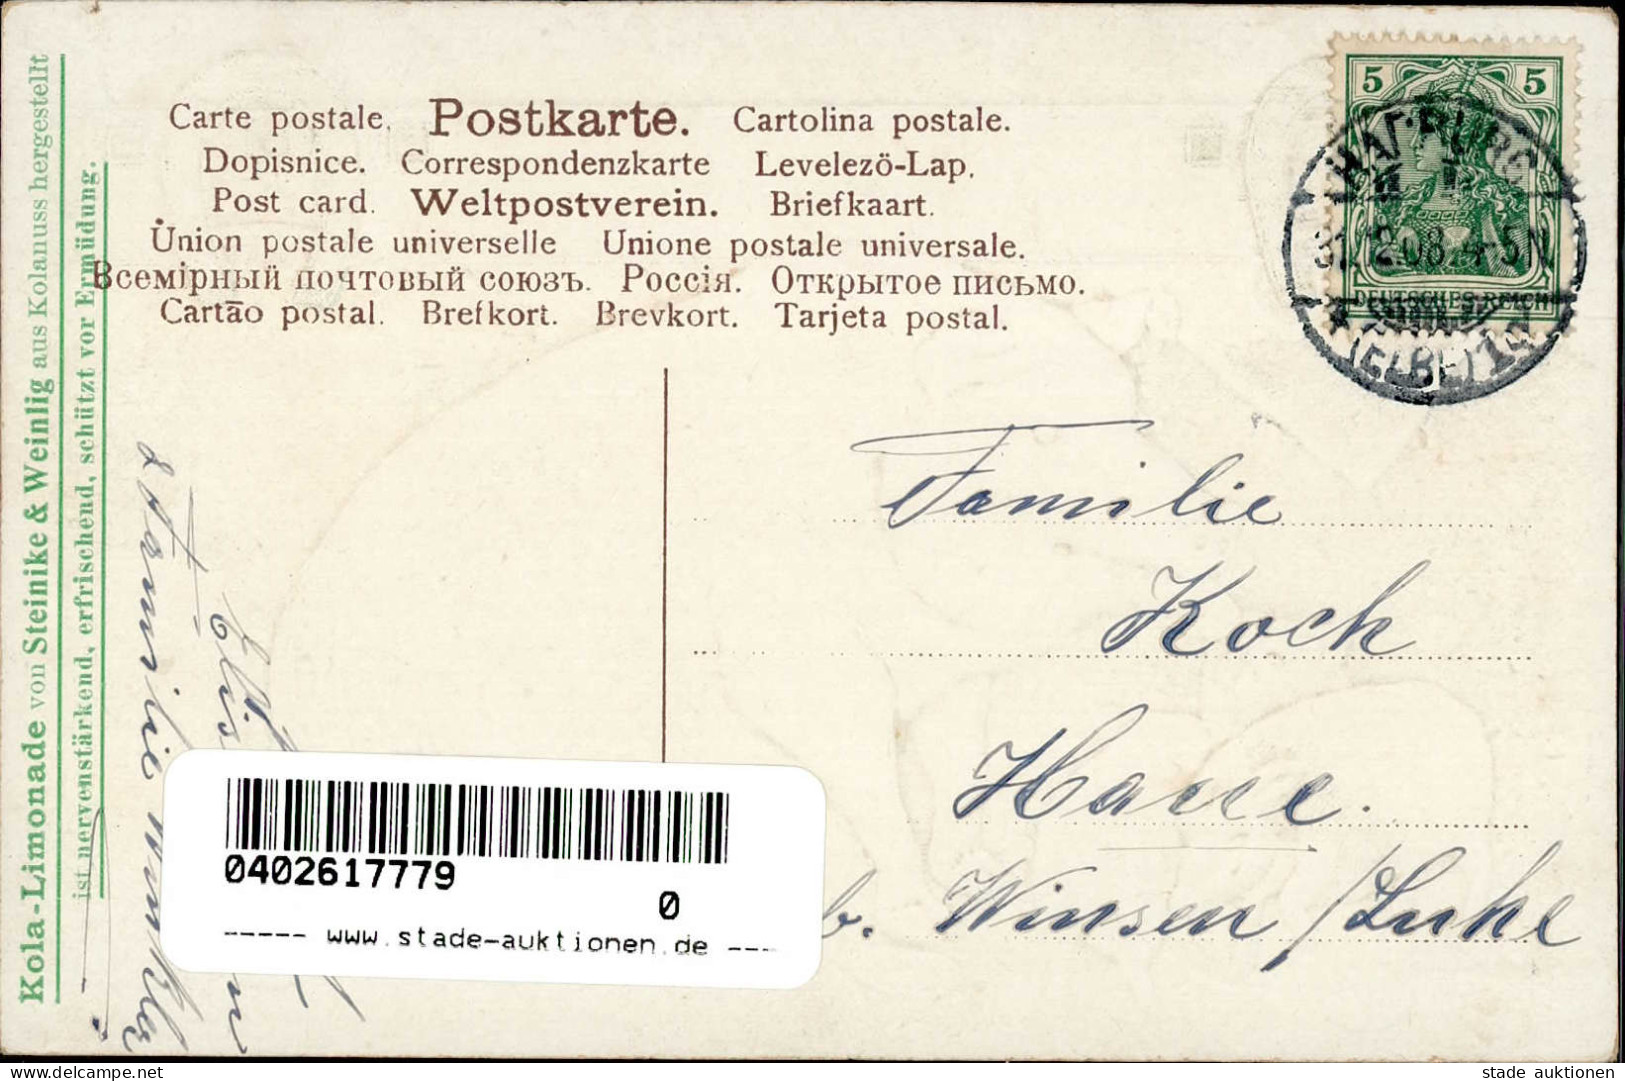 Kola-Limonade von Steinike & Weinlig aus Kolanuss hergestellt
ist nervenstärkend, erfrischend, schützt vor Ermüdung.
Carte postale. Postkarte. Cartolina postale.
Dopisnice. Correspondenzkarte Levelező-Lap.
Post card. Weltpostverein. Briefkaart.
Union postale universelle Unione postale universale.
Всемірный почтовый союзъ. Россія. Открытое письмо.
Cartão postal. Brefkort. Brevkort. Tarjeta postal.
5 5
HARBURG
31.12.08. 4-5N
DEUTSCHES REICH
(ELBE) 1
Familie
Koch
Haue.
b. Winsen / Luhe
Familie
0402617779
0
----- www.stade-auktionen.de ---
stade auktionen